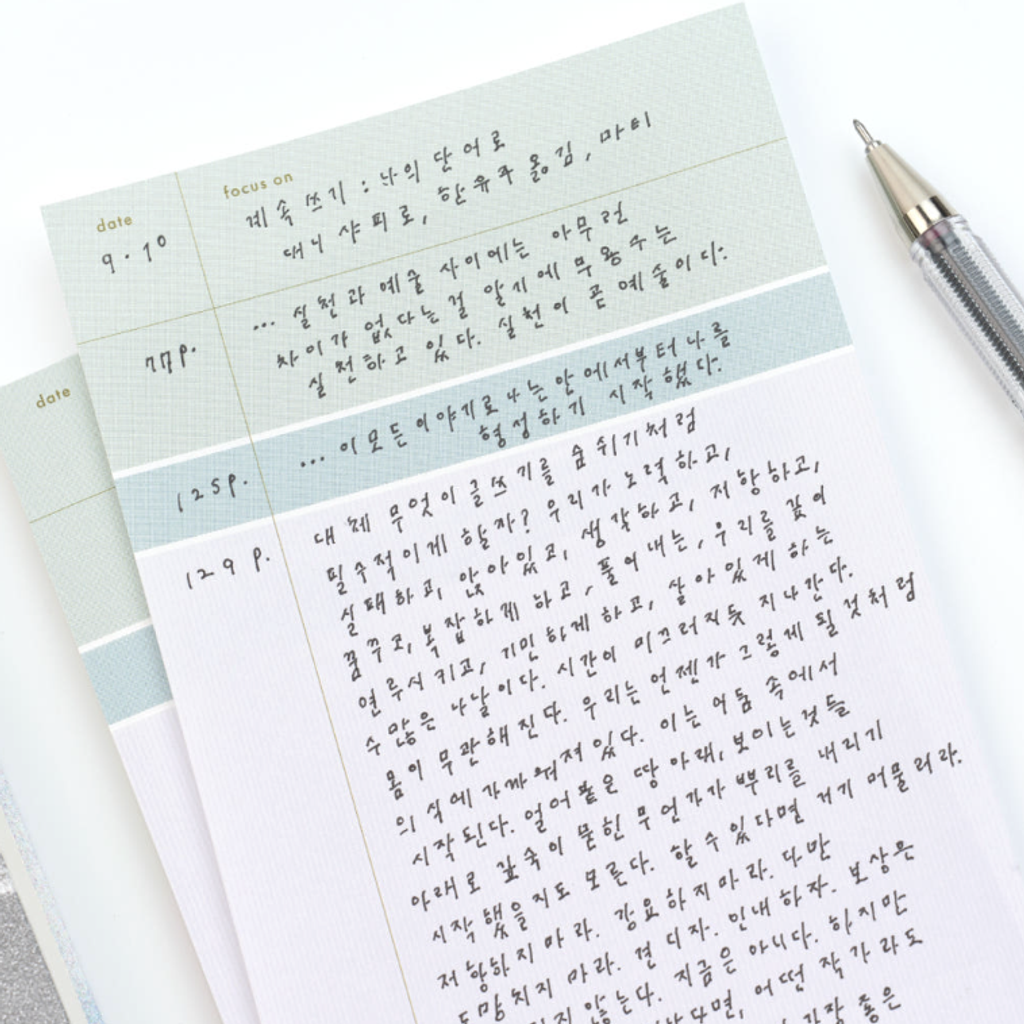 date
focus on
9.10
계속 쓰기 : 나의 단어로
대니 샤피로, 한유주 옮김, 마티
77p.
... 실천과 예술 사이에는 아무런
차이가 없다는걸 알기에 무용수는
실천하고 있다. 실천이 곧 예술이다.
125p.
... 이 모든 이야기로 나는 안에서부터 나를
형성하기 시작했다.
129p.
대체 무엇이 글쓰기를 숨쉬기처럼
필수적이게 할까? 우리가 노력하고,
실패하고, 앉아있고, 생각하고, 저항하고,
꿈꾸고, 복잡하게 하고, 풀어내는, 우리를 깊이
연루시키고, 기민하게하고, 살아있게 하는
수많은 나날이다. 시간이 미끄러지듯 지나간다.
몸이 무관해진다. 우리는 언젠가 그렇게 될 것처럼
의식에 가까워져 있다. 이는 어둠 속에서
시작된다. 얼어붙은 땅 아래, 보이는 것들
아래로 깊숙이 묻힌 무언가가 뿌리를 내리기
시작했을지도 모른다. 할 수 있다면 거기 머물러라.
저항하지 마라. 강요하지마라. 다만
도망치지 마라. 견디자. 인내하자. 보상은
않는다. 지금은 아니다. 하지만
어떤 작가라도
가장 좋은
date